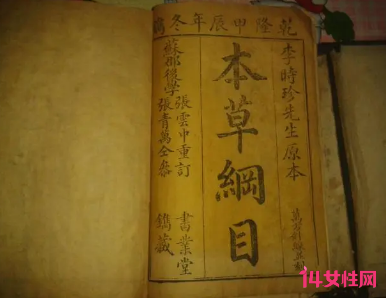 乾隆甲辰年冬鐫
李時珍先生原本
本草綱目
蘇郡後學
張雲中重訂
張青萬仝參
書業堂
鐫藏
14女性网